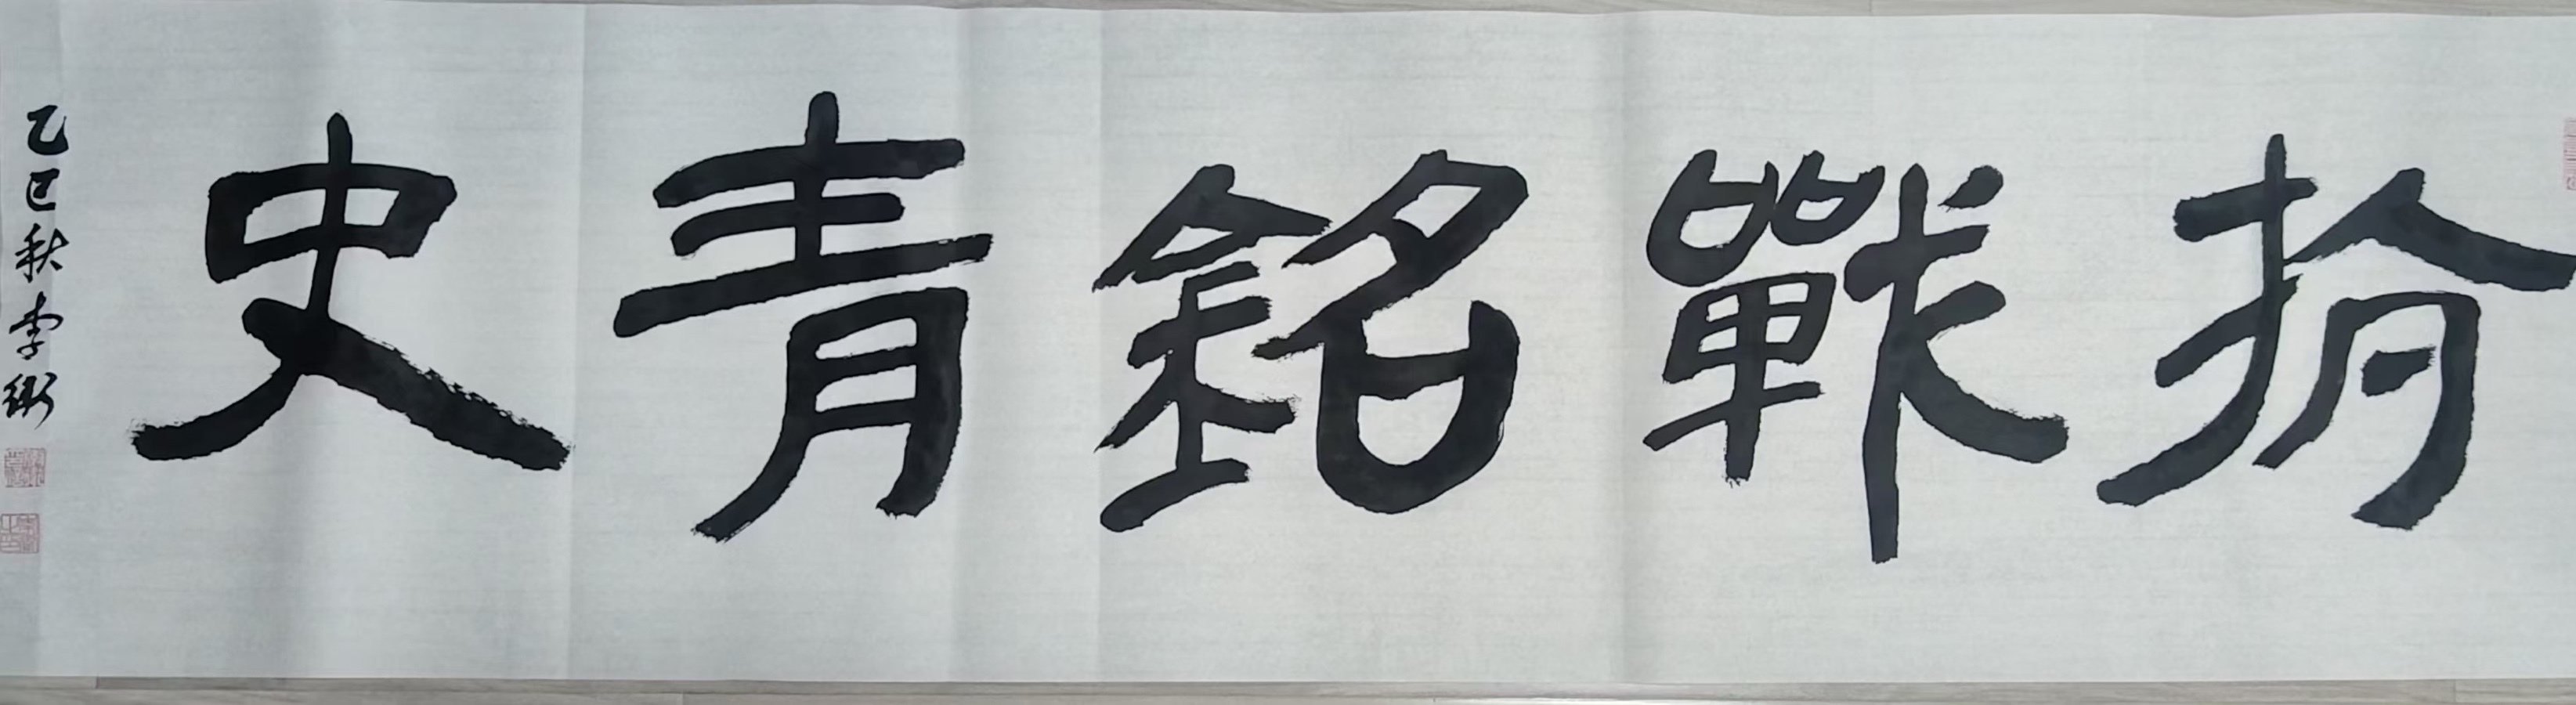 抗戰銘青史
乙巳秋李